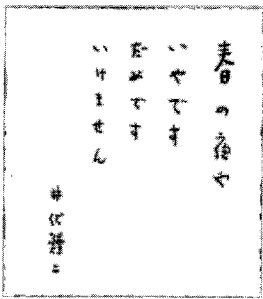 春の夜や
いやです
だめです
いけません
井伏鱒二